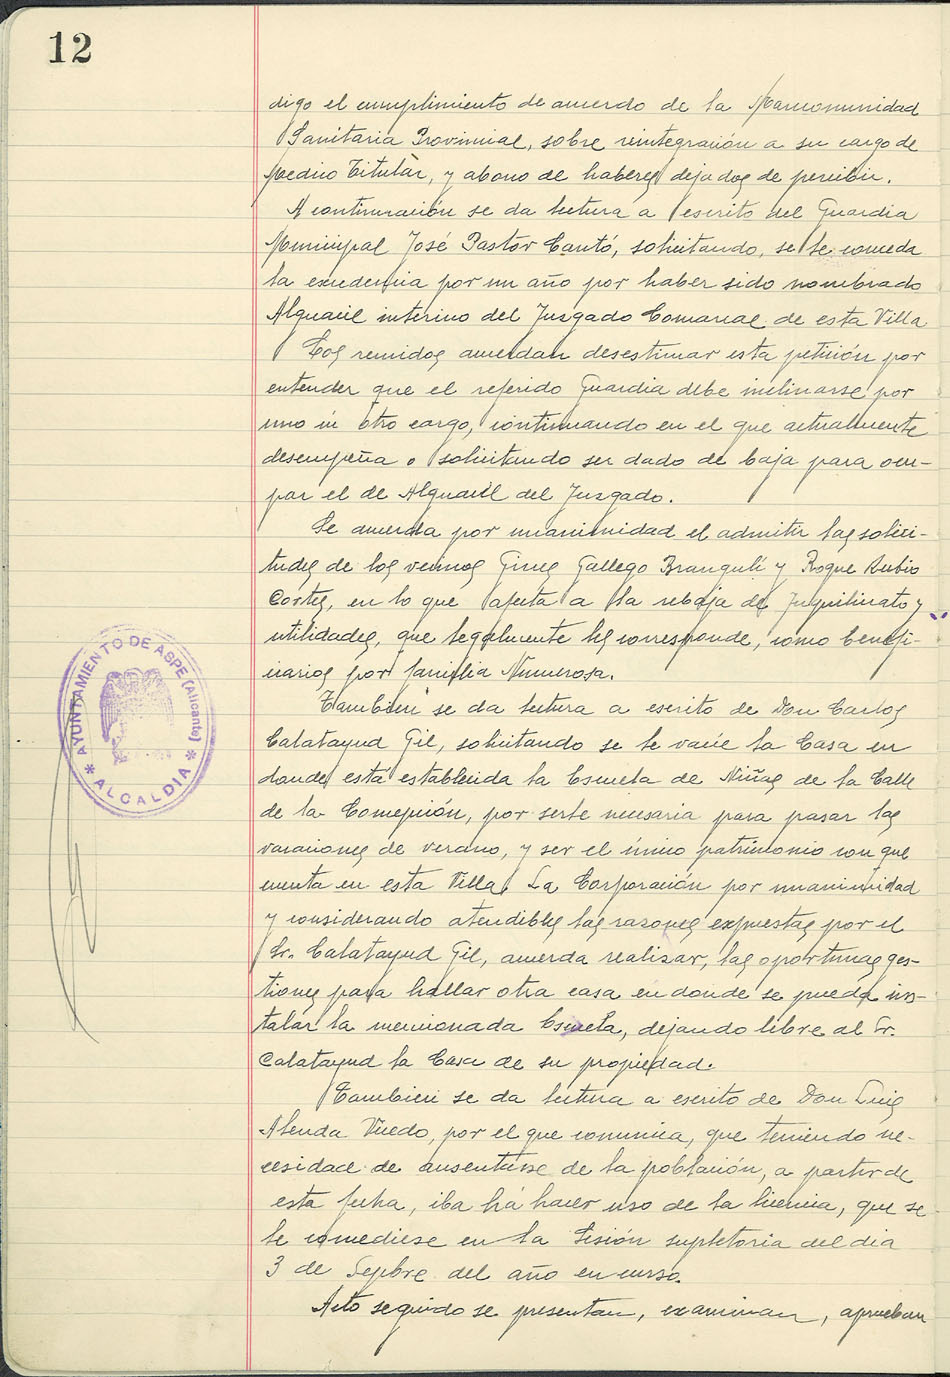 12
digo el cumplimiento de acuerdo de la Mancomunidad
Sanitaria Provincial, sobre reintegración a su cargo de
Medico Titular, y abono de haberes dejados de percibir.
A continuación se da lectura a escrito del Guardia
Municipal José Pastor Cantó, solicitando, se le conceda
la excedencia por un año por haber sido nombrado
Alguacil interino del Juzgado Comarcal de esta Villa
Los reunidos acuerdan desestimar esta petición por
entender que el referido Guardia debe inclinarse por
uno ú otro cargo, continuando en el que actualmente
desempeña o solicitando ser dado de baja para ocu-
par el de Alguacil del Juzgado.
Se acuerda por unanimidad el admitir las solici-
tudes de los vecinos Gines Gallego Brangulí y Roque Rubio
Cortes, en lo que afecta a la rebaja de Inquilinato y
utilidades, que legalmente les corresponde, como benefi-
ciarios por familia Numerosa.
Tambien se da lectura a escrito de Don Carlos
Calatayud Gil, solicitando se le vacie la Casa en
donde está establecida la Escuela de Niñas de la Calle
de la Concepción, por serle necesaria para pasar las
vacaciones de verano, y ser el único patrimonio con que
cuenta en esta Villa. La Corporación por unanimidad
y considerando atendibles las razones expuestas por el
Sr. Calatayud Gil, acuerda realizar, las oportunas ges-
tiones para hallar otra casa en donde se pueda ins-
talar la mencionada Escuela, dejando libre al Sr.
Calatayud la Casa de su propiedad.
Tambien se da lectura a escrito de Don Luis
Alenda Vicedo, por el que comunica, que teniendo ne-
cesidad de ausentarse de la población, a partir de
esta fecha, iba há hacer uso de la licencia, que se
le concediese en la Sesión supletoria del dia
3 de Sepbre. del año en curso.
Acto seguido se presentan, examinan, aprueban
AYUNTAMIENTO DE ASPE (Alicante)
* ALCALDIA *